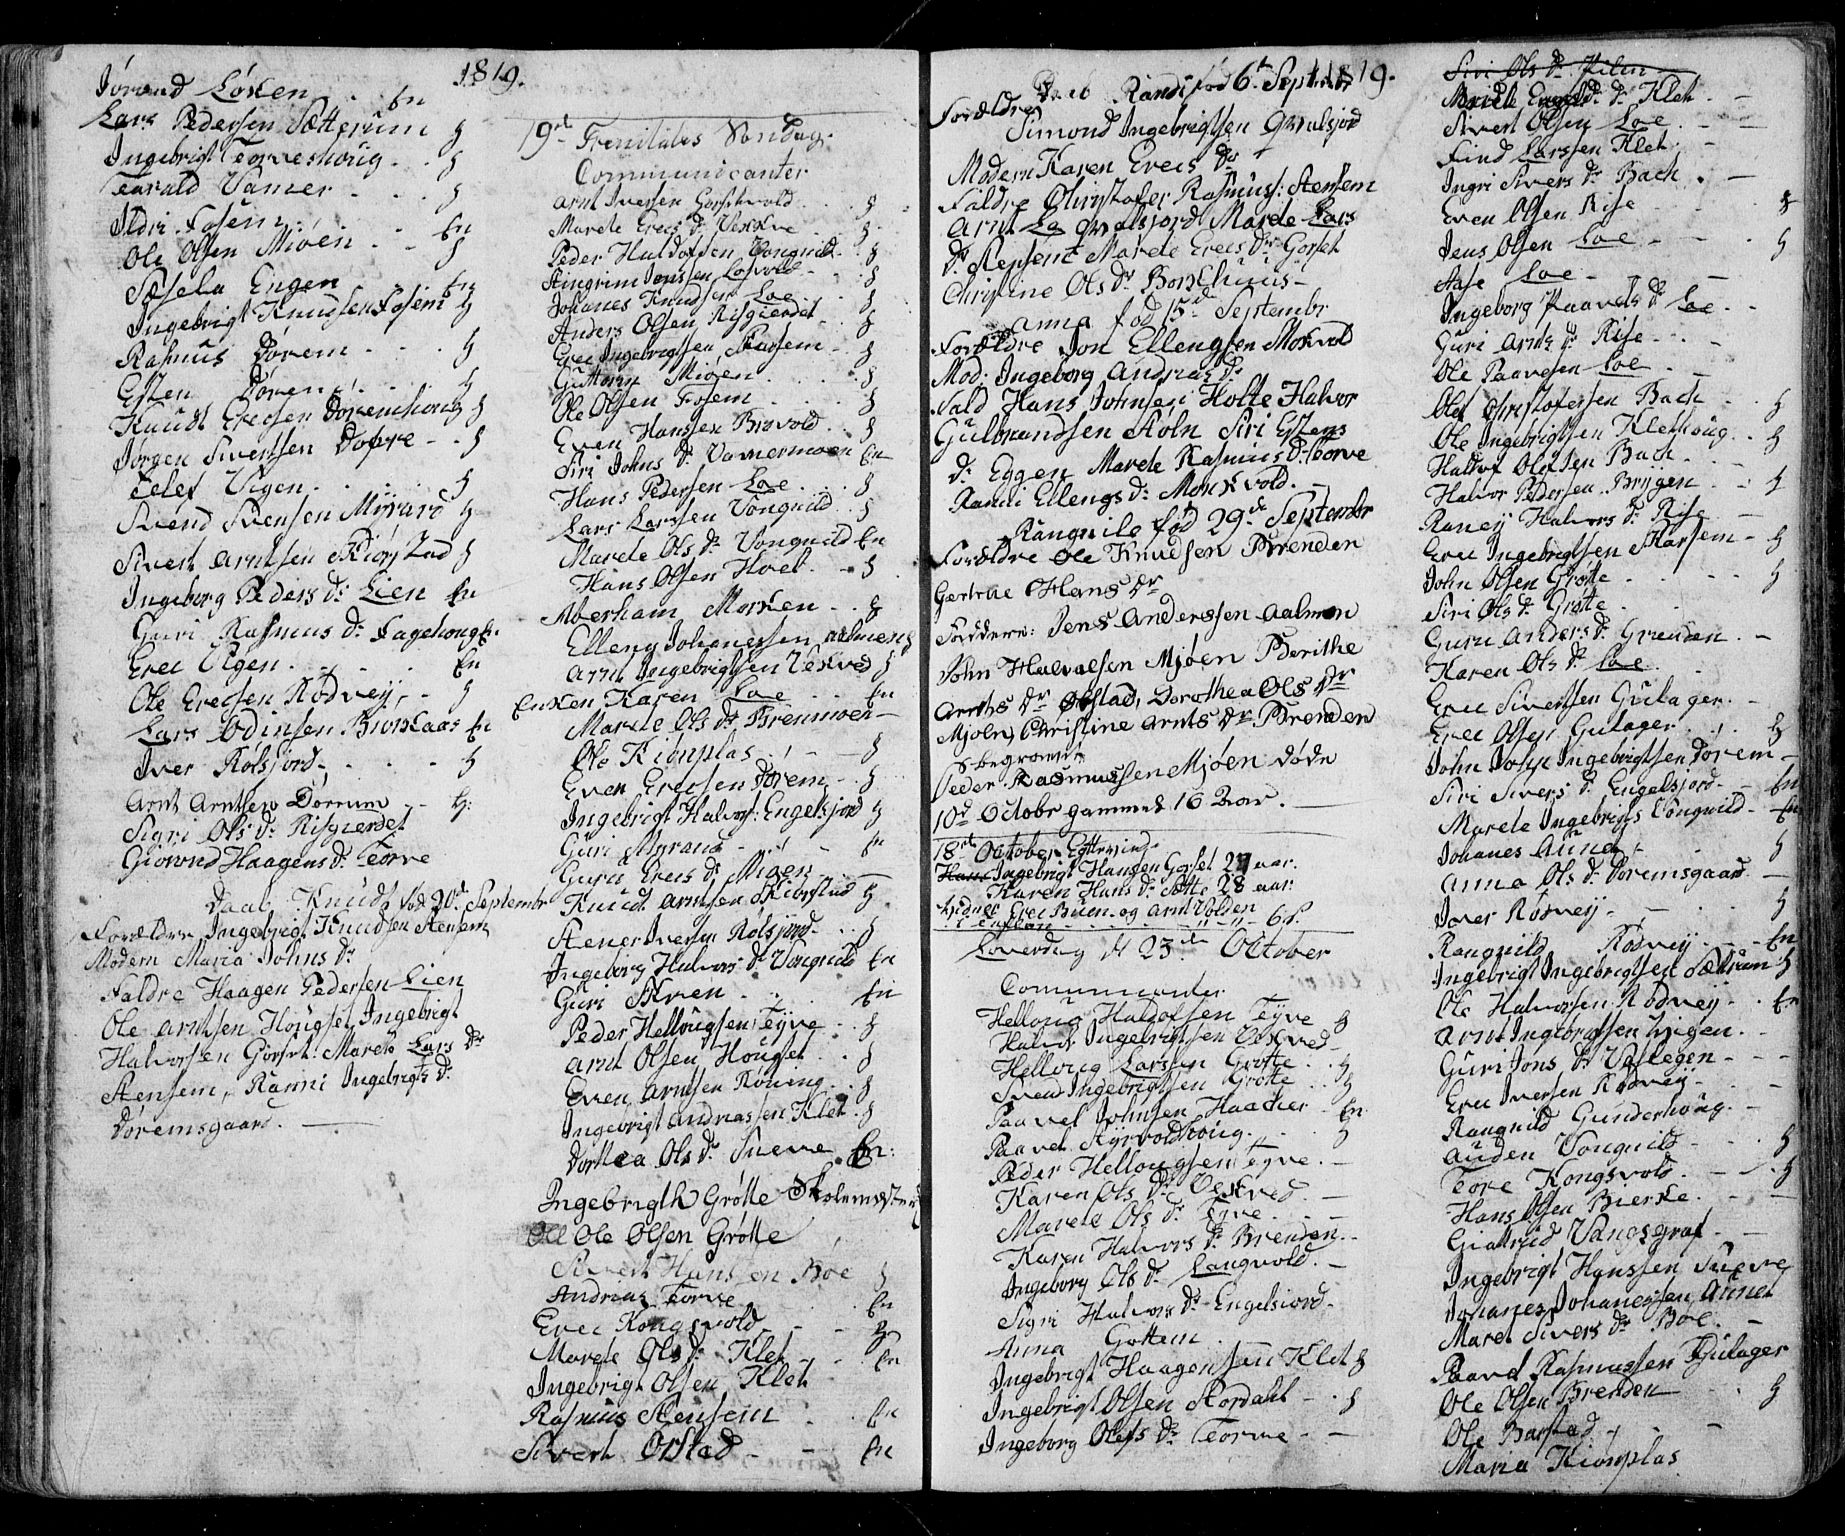 1819.
Jørand Løken . . En
Lars Pedersen Sætterum §
Ingebrigt Torveshoug . . §
Harald Vamer - . . . §
Ildri Fosem . .
Ole Olsen Mioen . . En
Sæsela Engen §
Ingebrigt Knudsen Fosem §
Rasmus Dørem . . . §
Esten Dørem . . . §
Knudt Erecsen Doremshoug §
Jørgen Sivertsen Dofre - . §
Vigen . . . . §
Svend Svensen Myrard §
Sivert Arntsen Kiørstad §
Ingeborg Peders Dr Lien En
Guri Rasmus Dr Fagehoug En
Erec Vigen . . . . En
Ole Erecsen Rodvey, . . §
Lars Odinsen En
Iver Rolsjord - . . . §
Arnt Arntsen Dorrum - - §:
Sigri Ols Dr Risgierdet
Giørond Haagens Dr Torve
Daab Knud, fød 20de Septembr
Forældre Ingebrigt Knudsen Stensem
Modern Maria Johns Dr
Faddre Haagen Pedersen Lien
Ole Arntsen Hougset, Ingebrigt
Halvorsen Gorset: Marete Lars Dr
Stensem, Ranni Ingebrigts Dr
Doremsgaard. —
19de Trenitates Søndag.
Communicanter
Arnt Iversen Gorsetvold . . . §
Marete Erecs Dr Vekkve - - §.
Peder Haldorsen Vongnild - §
Stingrim Jensen Losvold - . §
Johanes Knudsen Loe . . . §
Anders Olsen Risgierdet . . §
Erec Ingebrigtsen Skarsem - . §
Guttorm Mioen . . . . §
Ole Olsen Fosem . . . . §
Even Hanssen Brovold . . . §
Siri Johns Dr Vamermoen En
Hans Pedersen Loe . . . . §
Lars Larssen Vongnild . . §
Marete Ols Dr Vongnild En
Hans Olsen Hoel. . - §
Aberham Morken - . §
Elleng Johanessen Aalmen §
Arnt Ingebrigtsen Vekved §
Enken Karen Loe . . . En
Marete Ols Dr Brenmoen -
Ole Kiønplas . , - . §
Even Erecsen Dorem - . §
Ingebrigt Halvors: Engelsjord §
Guri Myrand - . . . En
Guru Erecs Dr Migen - -
Knudt Arntsen Kiørstad §
Stener Iversen Rølsjord - . §
Ingeborg Halvors Dr Vongnild En
Guri Skven . . . . En
Peder Hellougsen Teyve . . §
Arnt Olsen Hougset . . §
Even Arntsen Røning . . §
Ingebrigt Andreassen Klet . §
Dorthea Ols Dr Sneve En:
Ingebrigth Grötte Skolemester
Ole Olsen Grötte
Sivert Hanssen Boe §
Andreas Torve . . . En
Erec Kongsvold - - §
Marete Ols Dr Klet - - En
Ingebrigt Olsen Klet
Rasmus Stensem . . En
Sivert Orstad - - En
1819.
Daab Randi fød 6te Septembr
Forældre
Simond Ingebrigtsen Gravalsjord
Modern Karen Erecs Dr
Faddre Christofer Rasmuss: Stensem
Arnt Marete Lars
Dr Stensem Marete Erecs Dr Gorset
Christine Ols Dr Borkhuus -
Anna fød 15de Septembr
Forældre Jon Ellengsen Morkvold
Mod: Ingeborg Andreas Dr
Fadd Hans Johnsen Holte Halvor
Gulbrandsen Stoln Siri Estens
Dr Eggen Marete Rasmus Dr Torve
Ranni Ellengs Dr Morkvold.
Rangnild fød 29de Septembr
Forældre Ole Knudsen Brenden
Gertrue Hans Dr
Faddere: Jens Anderssen Aalmen
John Halvorsen Mjøen Berithe
Arnts Dr Orstad, Dorothea Ols Dr
Mjøen, Christine Arnts Dr Brenden
begravet
Peder Rasmussen Mjøen døde
10de Octobr gammel 16 Aar. —
18de October
Ingebrigt Hansen Gorset 27 aar.
Karen Hans Dr Sætte 28 aar
Erec Buen og Arnt Volden
Løverdag d 23de October
Communicanter
Helloug Haldorsen Teyve §
Ingebrigtsen Vekved -
Helloug Larssen Grotte . . §
Svend Ingebrigtsen Grotte . . §
Paavel Johnsen Haacker . En
Paavel Kyrvoldhoug . . . §
Peder Hellougsen Teyve . -
Karen Ols Dr Vekved. -
Marete Ols Dr Teyve . . -
Karen Halvors Dr Brenden . -
Ingeborg Ols Dr Langvold. -
Sigri Halvors Dr Engelsiord -
Anna Gottem .
Ingebrigt Haagensen Klet §
Ingebrigt Olsen Stordahl - . §
Ingeborg Olefs Dr Torve - -
Siri Ols Dr Vilen
Marete Dr Klet -
Sivert Olsen Loe . - -
Find Larssen Klet . -
Ingri Sivers Dr Bach . -
Even Olsen Rise . . . §
Jens Olsen Loe . - - . §
Aase Loe - -
Ingeborg Paavels Dr Loe . .
Guri Arnts Dr Rise - - -
Ole Paavelsen Loe . -
Olef Christofersen Bach - . §
Ole Ingebrigtsen Klethoug . . §
Haldof Olefsen Bach . . .
Halvor Pedersen Bryggen . . §
Raney Halvors Dr Rise -
Erec Ingebrigtsen Skarsem - §
John Olsen Grotte . . . . §
Siri Ols Dr Grotte . .
Guru Anders Dr Grenden . -
Karen Ols Dr Loe . .
Erec Sivertsen Gulager . -
Erec Olsen Gulager . . . §
John Ingebrigtsen Dorem -
Siri Sivers Dr Engelsjord - En
Marete Ingebrigts Vongnild - En
Johanes Aunet - . . §
Anna Ols Dr Doremsgaard -
Iver Rodvey - . . . §
Rangnild Rodvey - - En
Ingebrigt Ingebrigtsen Sætrum §
Ole Halvorsen Rodvey . . En
Arnt Ingebrigtsen Vigen . -
Guri Jons Dr Vollegen - - -
Erec Iversen Rodvey - . -
Rangnild Gunderhoug . -
Auden Vongnild - . §
Tore Kongsvold . - . §
Hans Olsen Bierke . - -
Giøtrud Vangsgraf . -
Ingebrigt Hanssen Sneve
Johanes Johanessen Aunet
Maret Sivers Dr Boe. -
Paavel Rasmussen Gulager
Ole Olsen Brenden . . §
Ole Barstad - -
Maria Kiønplas